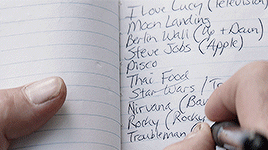 I Love Lucy (Television
Moon Landing
Berlin Wall (Up + Down)
Steve Jobs (Apple)
Disco
Thai Food
Star Wars / Tr
Nirvana (Ba
Rocky (Rocky
Troubleman (